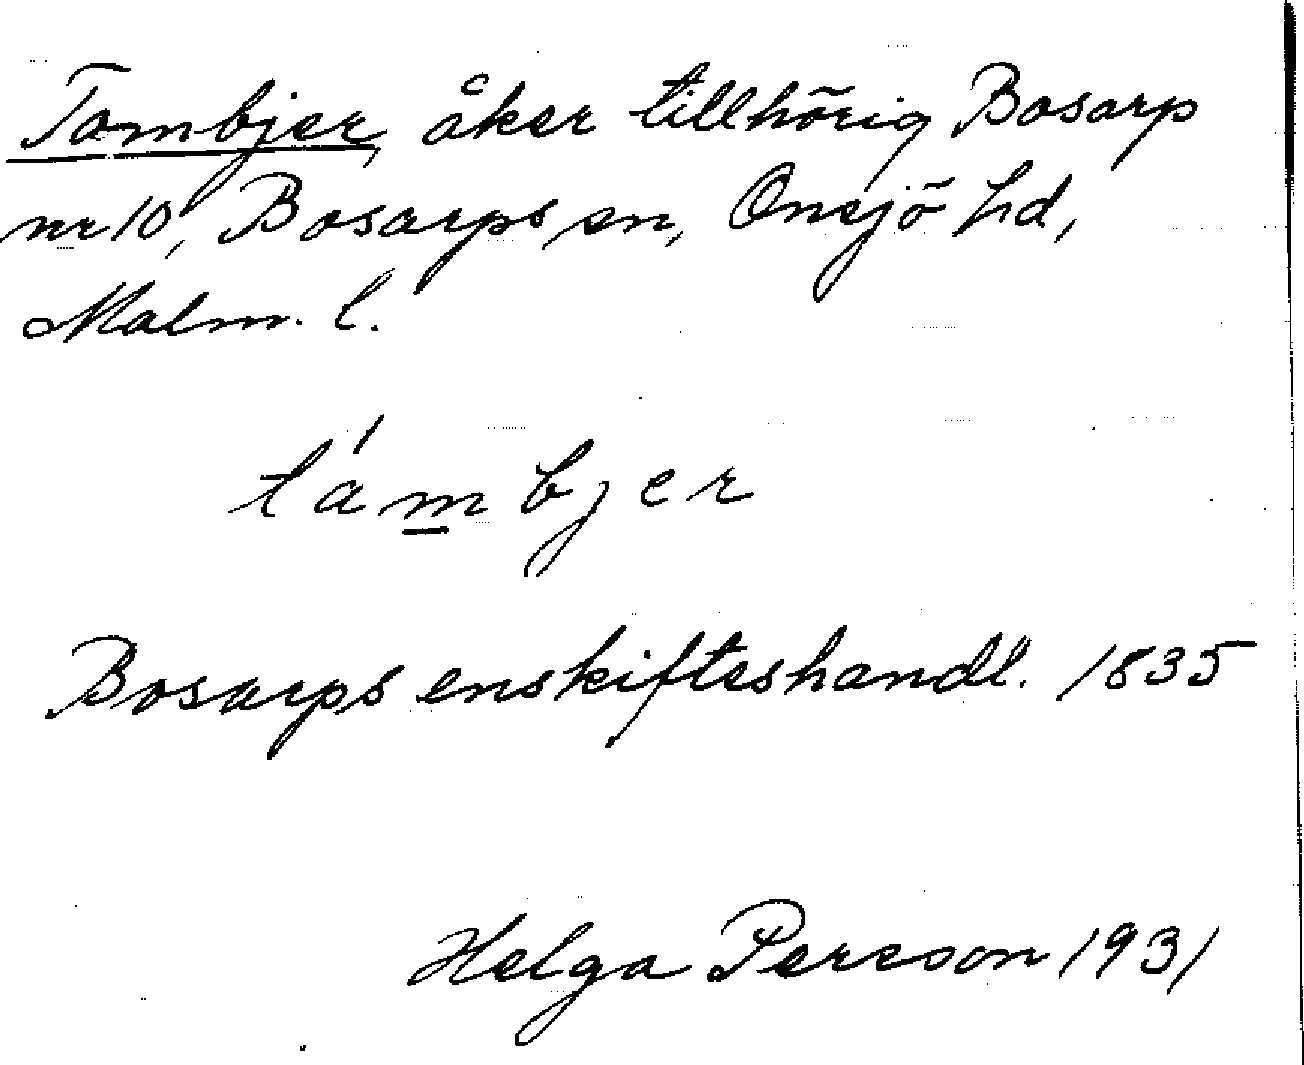 Tambjer, åker tillhörig Bosarp
nr 10, Bosarps sn, Onsjö hd,
Malm. l.
támbjer
Bosarps enskifteshandl. 1835
Helga Persson 1931